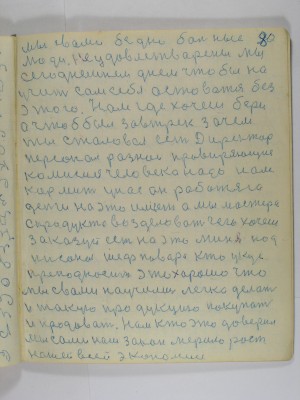 80
мы свами бедно больные
люди. Неудовлетварены мы
сегоднешнем днем чтобы на
учит сам себя астоватя без
этого. Нам где хочеш бери
а чтоб был завтрек зачем
ты сталовоя ест Директор
персонал разной проверяющие
комисия человека надо нам
кармит у нас он работяга
дети на это имеет а мы мастера
с прадукта возделоват чего хочеш
заказуй ест на это миню под
писоно шефповара кто куде
преподносит это хорошо что
мы свами научилис легко делат
и такую про дукцию покупат
и продоват. Нам кто это доверил
мы сами наш закон мерило рост
нашей всей экономии